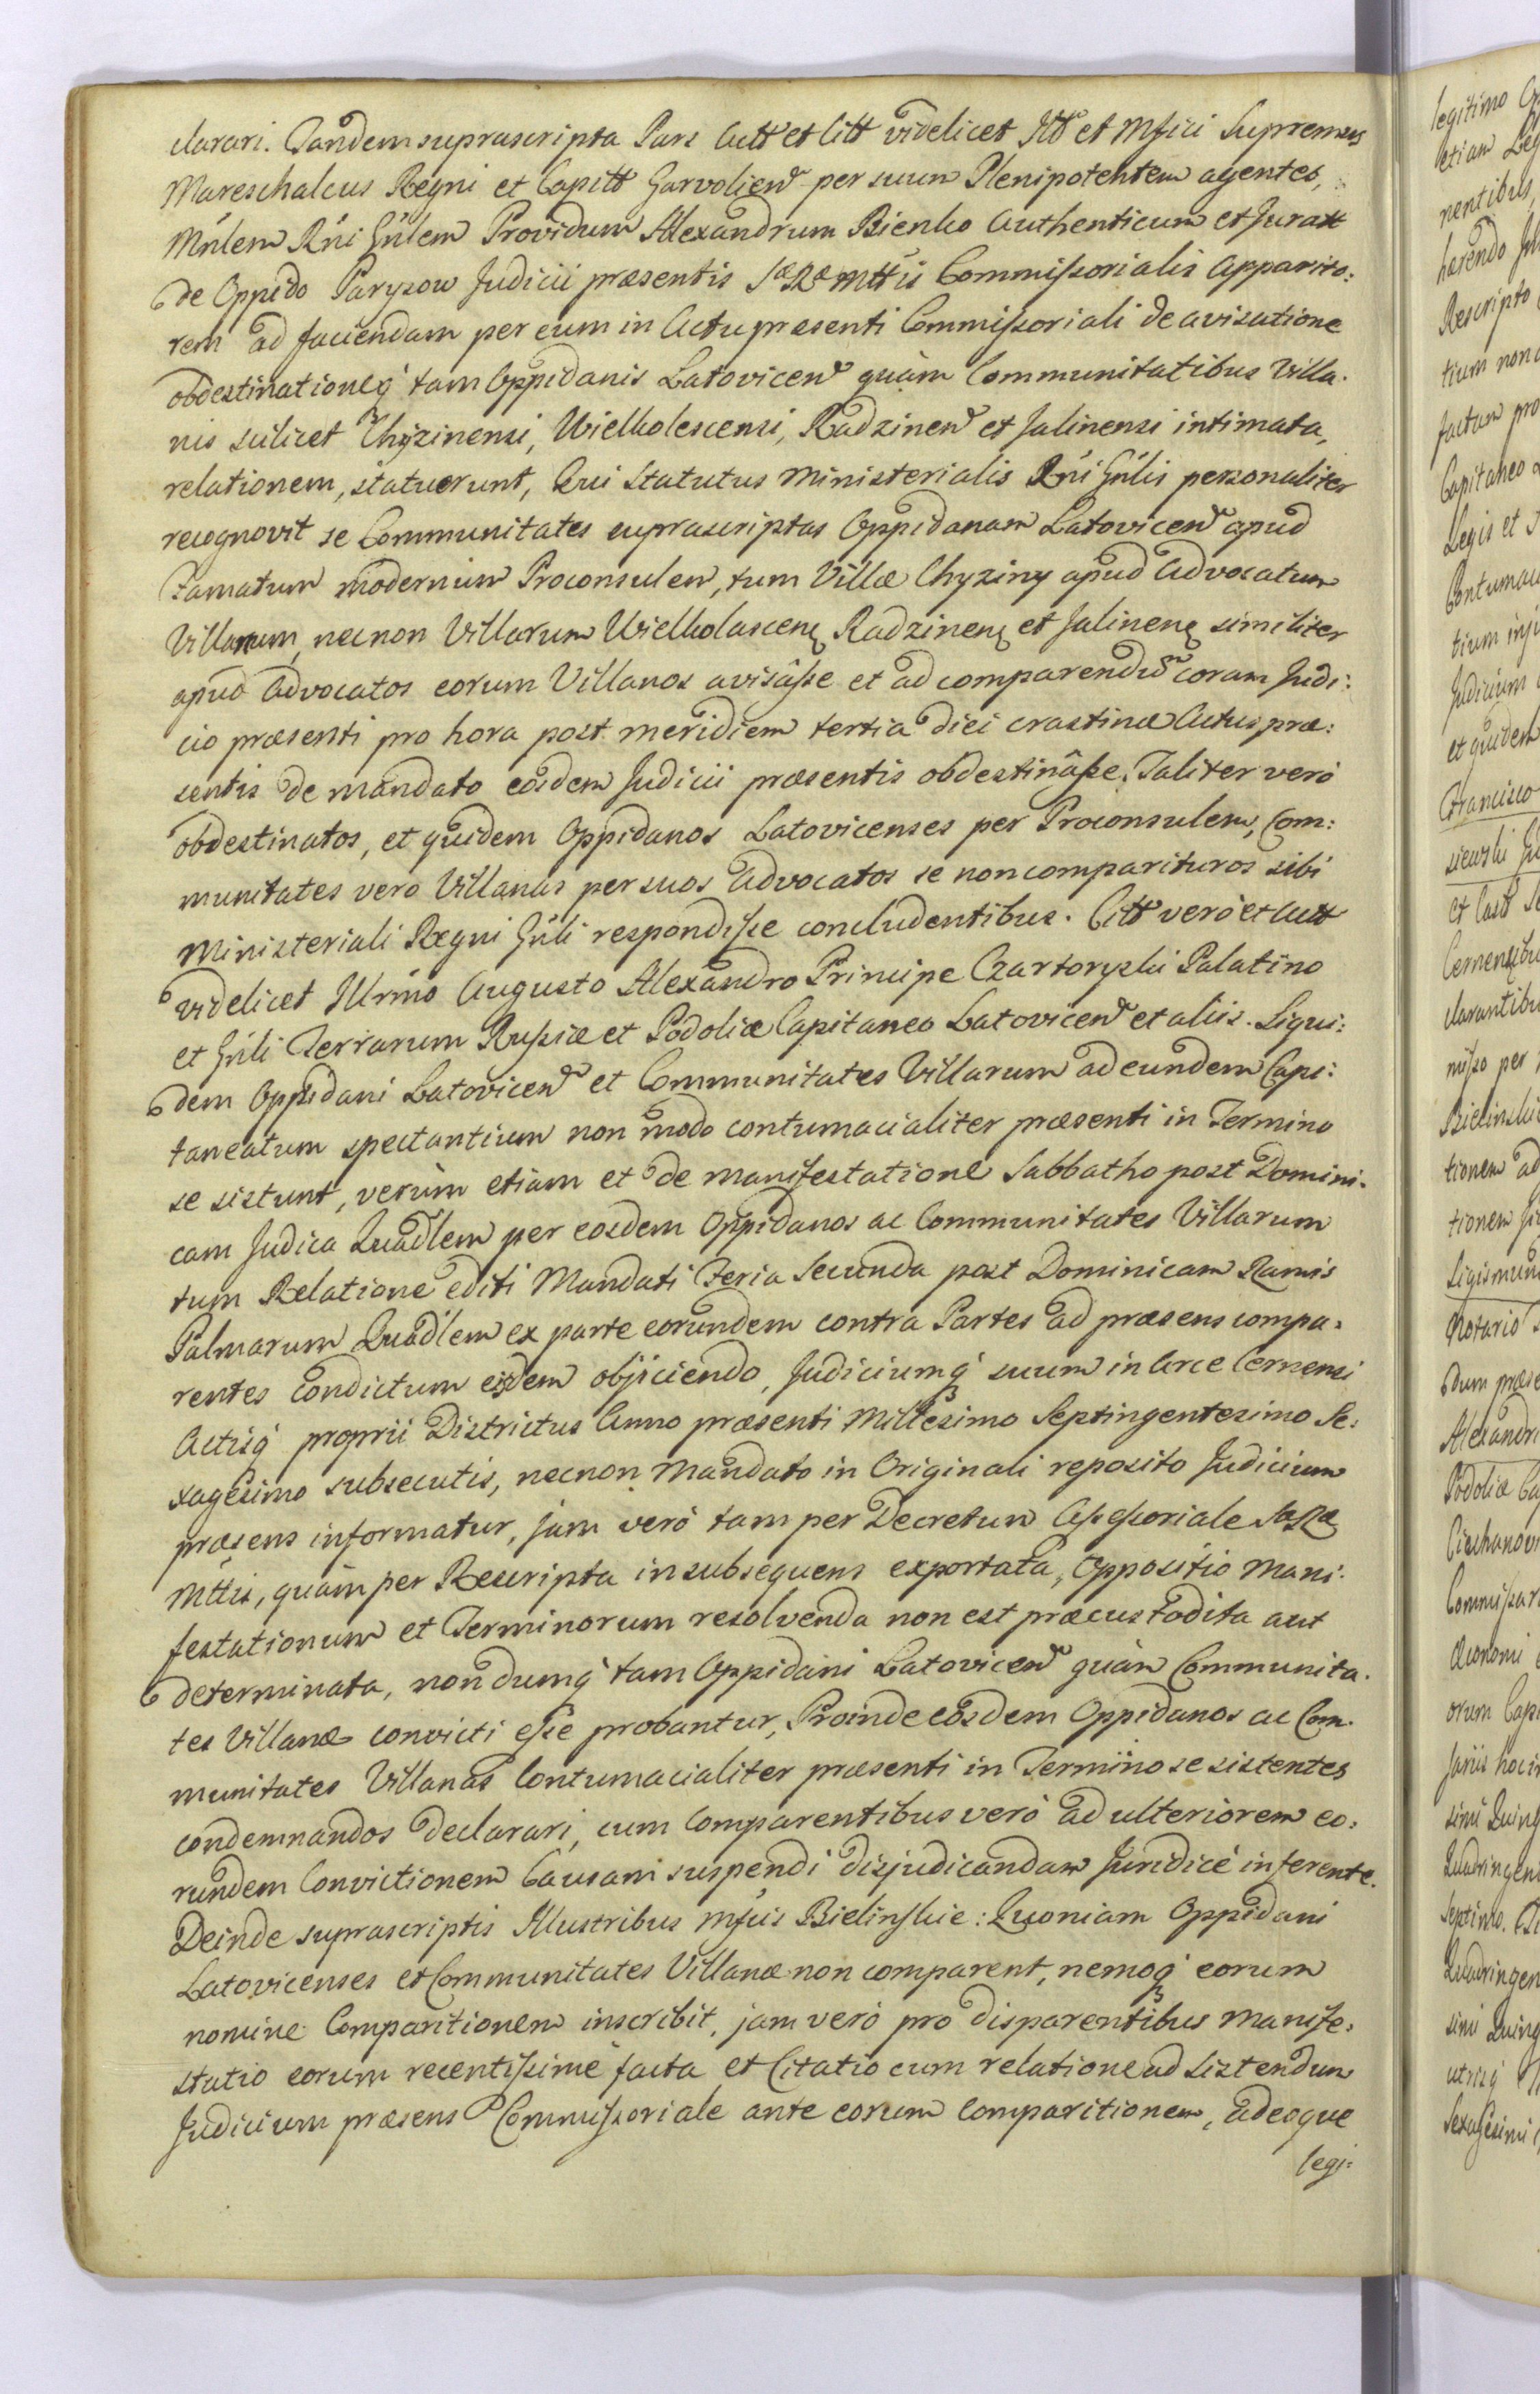 clarari. Tandem suprascripta Pars Actt et Citt videlicet Ill et Mfici Supremus
Mareschalcus Regni et Capitt Garvolien per suum Plenipotentem agentes,
Mnlem Rni Gnlem Providum Alexandrum Bienko Authenticum et Juratt
de Oppido Parysow Judicii præsentis SæRæ Mttis Commissorialis Apparito:
rem ad faciendam per eum in Actu præsenti Commissoriali de avisatione
obdestinationeq tam Oppidanis Latovicen quàm Communitatibus Villa.
nis scilicet Chyzinensi, Wielkolescensi, Radzinen et Jalinensi intimata,
relationem, statuerunt, Qui Statutus Ministerialis Rni Gnlis personaliter
recognovit se Communitates suprascriptas Oppidanam Latovicen apud
Famatum modernum Proconsulem, tum Villæ Chyziny apud Advocatum
Villanum, necnon Villarum Wielkolascen Radzinen et Jalinen similiter
apud Advocatos eorum Villanos avisâsse et ad comparendũ coram Judi:
cio præsenti pro hora post meridiem tertia diei crastinæ Actus præ:
sentis de mandato eosdem Judicii præsentis obdestinâsse. Taliter verò
obdestinatos, et quidem Oppidanos Latovicenses per Proconsulem, Com:
munitates vero Villanas per suos Advocatos se non comparituros sibi
Ministeriali Regni Gnli respondisse concludentibus. Citt verò et Actt
videlicet Illrmo Augusto Alexandro Principe Czartoryski Palatino
et Gnli Terrarum Russiæ et Podoliæ Capitaneo Latovicen et aliis. Siqui:
dem Oppidani Latovicen et Communitates Villarum ad eundem Capi:
taneatum spectantium non modo contumacialiter præsenti in Termino
se sistunt, verùm etiam et de manifestatione Sabbatho post Domini.
cam Judica Quadlem per eosdem Oppidanos ac Communitates Villarum
tum Relatione editi Mandati Feria Secunda post Dominicam Ramis
Palmarum Quadlem ex parte eorundem contra Partes ad præsens compa.
rentes condictum eisdem objiciendo, Judiciumq suum in Arce Cernensi
Actisq proprii Districtus Anno præsenti Millesimo Septingentesimo Se:
xagesimo subsecutis, necnon Mandato in Originali reposito Judicium
præsens informatur, jam verò tam per Decretum Assessoriale SæRæ
Mttis, quàm per Rescripta in subsequens exportata, Oppositio Mani.
festationum et Terminorum resolvenda non est præcustodita aut
determinata, nondumq tam Oppidani Latovicen quàm Communita.
tes Villanæ convicti esse probantur, Proinde eosdem Oppidanos ac Com.
munitates Villanas Contumacialiter præsenti in Termino se sistentes
condemnandos declarari, cum Comparentibus verò ad ulteriorem eo:
rundem Convictionem Causam suspendi disjudicandam Juridicè inferente.
Deinde suprascriptis Illustribus Mfcis Bielinskie: Quoniam Oppidani
Latovicenses et Communitates Villanæ non comparent, nemoq eorum
nomine Comparitionem inscribit, jam verò pro disparentibus Manife.
statio eorum recentissimè facta et Citatio cum relatione ad sistendum
Judicium præsens Commissoriale ante eorum Comparitionem, adeoque
legi:
legitimo
etiam
nentibus,
hærendo
Rescripto
tium non
factum pro
Capitaneo
Legis et
Contumac
tium inj
Judicium
et quidem
Francisco
siewski
et Cast
Cernensibu
clarantibu
misso per
Bielinski
tionem ad
tionem
Sigismun
Notario
dum præse
Alexandri
Podoliæ Ca
Ciechanow
Commissar
Oeconomi
orum Capi
sariis hoc
simi Quing
Quadringen
Septimo.
Quadringen
simi Quing
utrisq
Sexagesimi